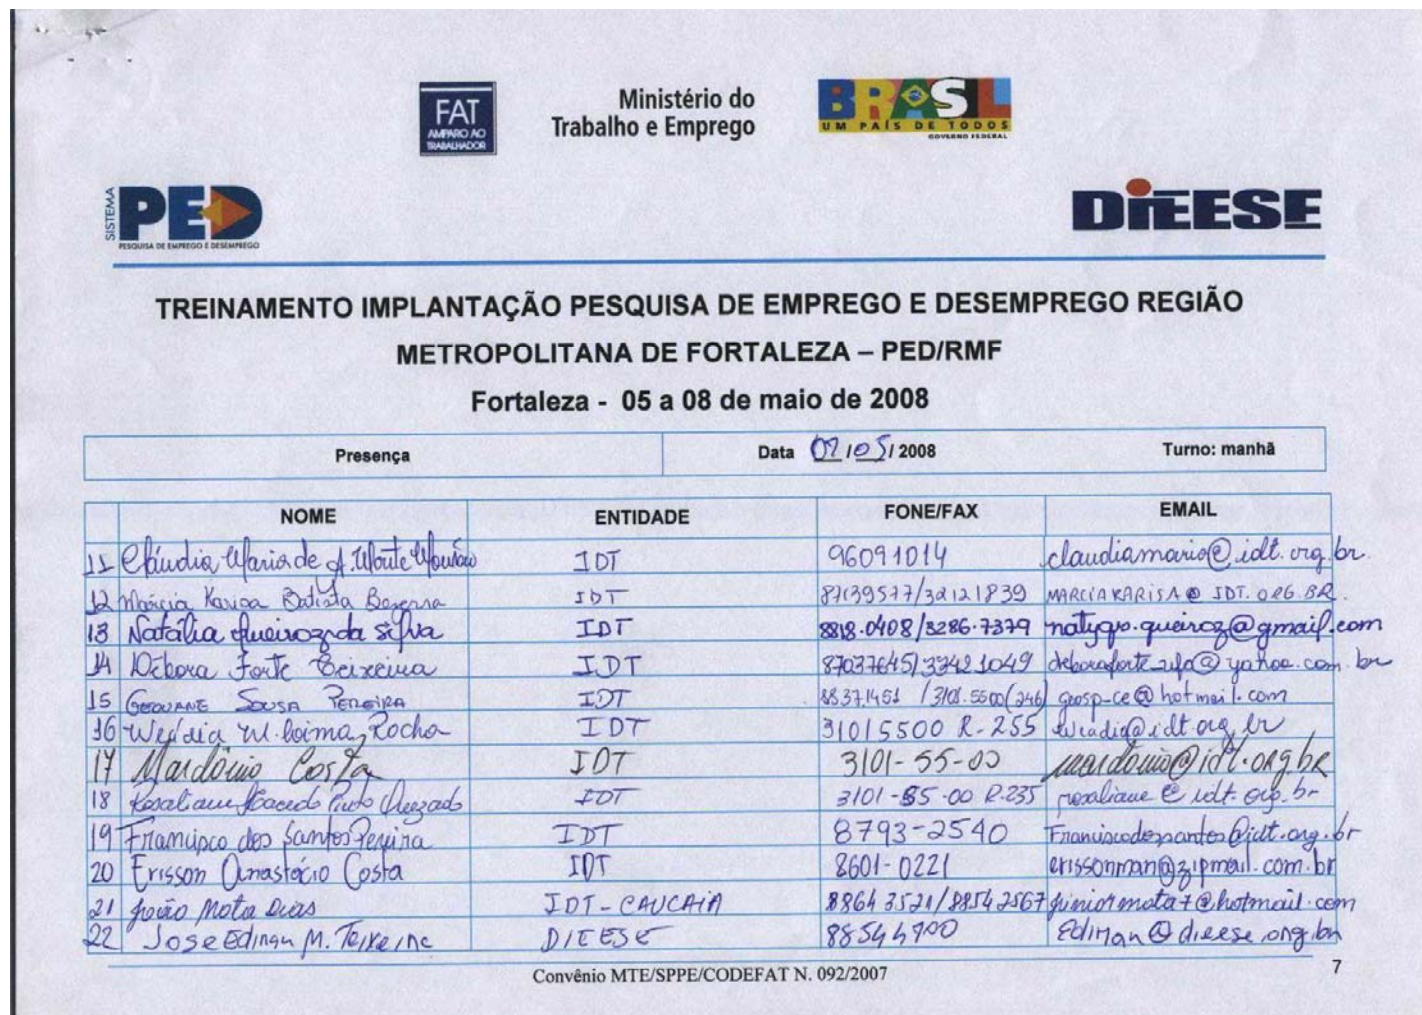 FAT
AMPARO AO
TRABALHADOR
Ministério do
Trabalho e Emprego
BRASIL
UM PAÍS DE TODOS
GOVERNO FEDERAL
SISTEMA
PED
PESQUISA DE EMPREGO E DESEMPREGO
DIEESE
TREINAMENTO IMPLANTAÇÃO PESQUISA DE EMPREGO E DESEMPREGO REGIÃO
METROPOLITANA DE FORTALEZA – PED/RMF
Fortaleza - 05 a 08 de maio de 2008
Presença Data 07/05/2008 Turno: manhã
NOME ENTIDADE FONE/FAX EMAIL
11 Cláudia Maria de A. Monte Mourão IDT 96091014 claudiamaria@idt.org.br.
12 Márcia Karisa Batista Bezerra IDT 87139577/32121839 MARCIAKARISA@IDT.ORG.BR.
13 Natália Queiroz da Silva IDT 8818.0408/3286.7379 natygo.queiroz@gmail.com
14 Débora Forte Teixeira IDT 87037645/33421049 @yahoo.com.br
15 GEOVANE SOUSA PEREIRA IDT 88371451 /3101.5500(246) geosp-ce@hotmail.com
16 M. Rocha IDT 31015500 R-255 @idt.org.br
17 Mardônio Costa IDT 3101-55-00 mardonio@idt.org.br
18 Rosaliane Macedo Pinto IDT 3101-55-00 R.235 rosaliane@idt.org.br
19 Francisco dos Santos Pereira IDT 8793-2540 Franciscodossantos@idt.org.br
20 Erisson Anastácio Costa IDT 8601-0221 erissonman@zipmail.com.br
21 João Mota Dias IDT-CAUCAIA 8864 3521/8854 2567 juniormota7@hotmail.com
22 Jose Ediran M. Teixeira DIEESE 88544700 Ediran@dieese.org.br
Convênio MTE/SPPE/CODEFAT N. 092/2007
7